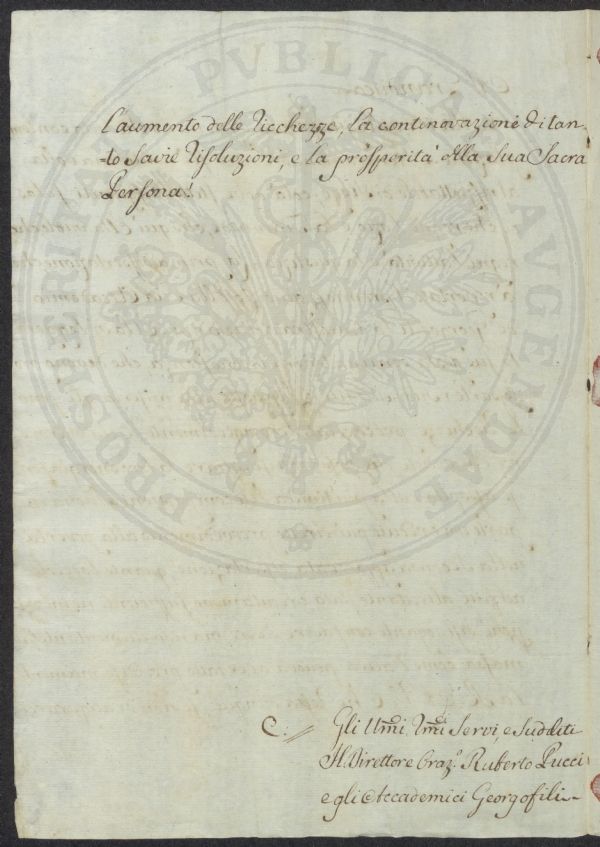 l'aumento delle Ricchezze, la continovazione di tan-
to Savie Risoluzioni, e la prosperità della Sua Sacra
Persona.
C. //
Gli Umi Umi Servi, e Sudditi
Il Direttore Oraz.o Ruberto Pucci
e gli Accademici Georgofili
PROSPERITATI PUBLICAE AUGENDAE